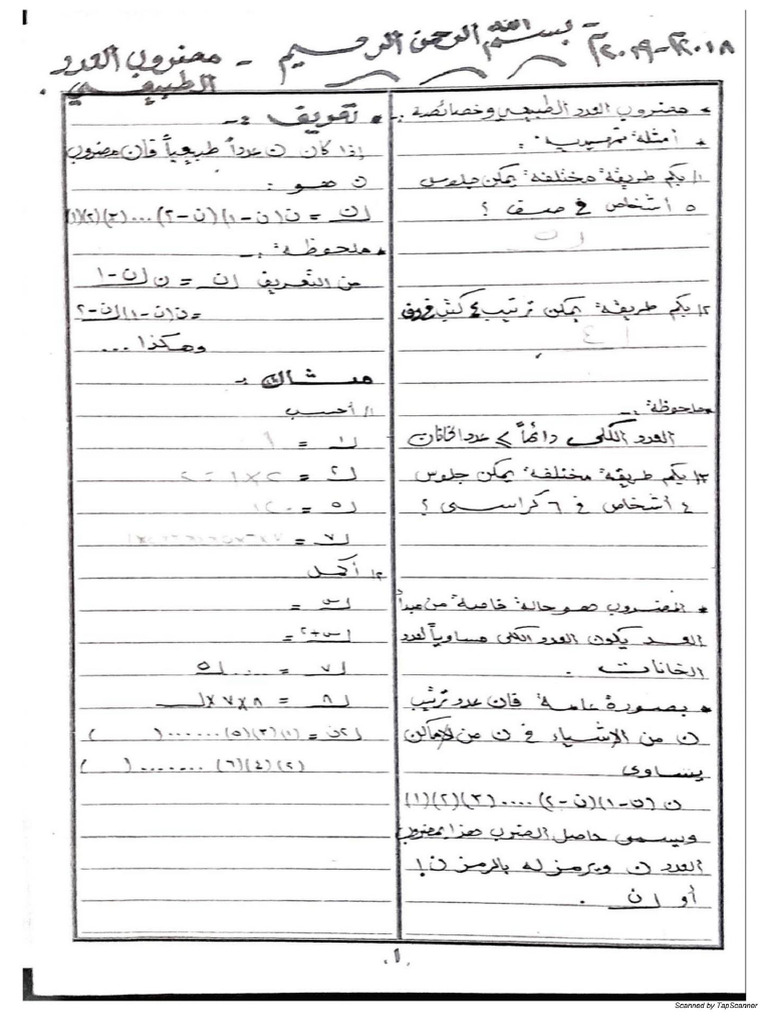 ٢٠١٨ - ٢٠١٩م - بسم الله الرحمن الرحيم - مضروب العدد الطبيعي .
* مضروب العدد الطبيعي وخصائصة :-
* أمثلة تمهيدية :
١/ بكم طريقة مختلفة يمكن جلوس
٥ أشخاص في صف ؟
٢/ بكم طريقة يمكن ترتيب ٤ كتب
٤
ملحوظة :-
العدد الكلي دائماً ≥ عدد الخانات
٣/ بكم طريقة مختلفة يمكن جلوس
٤ أشخاص في ٦ كراسي ؟
* المضروب هو حالة خاصة من مبدأ
العد يكون العدد الكلي مساوياً لعدد
الخانات .
* بصورة عامة فان عدد ترتيب
ن من الأشياء في ن من الأماكن
يساوى
ن (ن-١)(ن-٢) .... (٣)(٢)(١)
ويسمى حاصل الضرب هذا بمضروب
العدد ن ويرمز له بالرمز ن!
أو ⌊ن .
* تعريف :-
إذا كان ن عدداً طبيعياً فان مضروب
ن هو :
⌊ن = ن(ن-١)(ن-٢)...(٣)(٢)(١)
* ملحوظة :-
من التعريف ⌊ن = ن⌊ن-١
= ن(ن-١)⌊ن-٢
وهكذا ...
مثال :-
١/ أحسب
⌊١ = ١
⌊٢ = ٢×١ = ٢
⌊٥ = ١٢٠
⌊٧ =
٢/ أكمل
⌊س =
⌊س+٢ =
⌊٧ = .... ⌊٥
⌊٨ = ٨×٧×⌊
⌊٢ن = (١)(٣)(٥).......( )
(٢)(٤)(٦) ........ ( )
.١.
Scanned by TapScanner